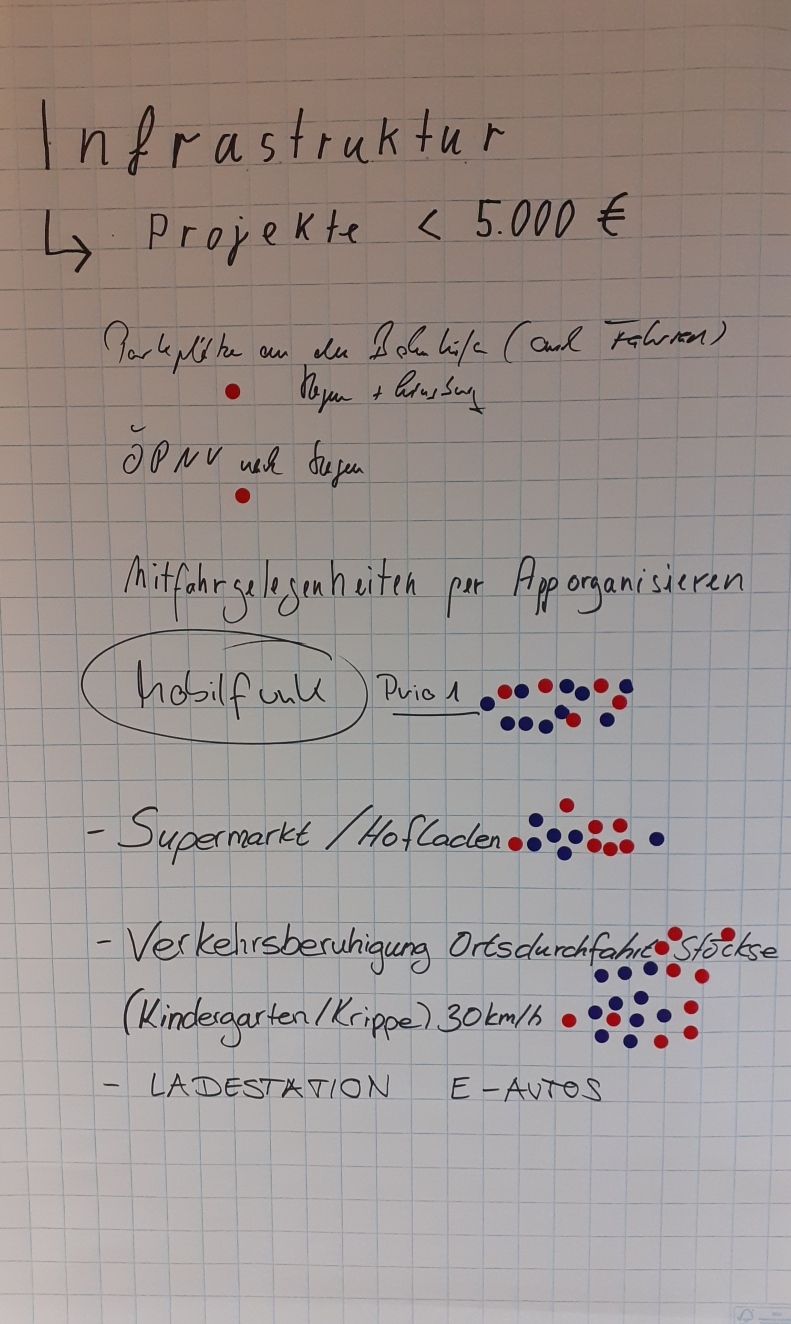 Infrastruktur
↳ Projekte < 5.000 €
Parkplätze an der Bahnhöfe (auch Fahrrad)
+
ÖPNV nach
Mitfahrgelegenheiten per App organisieren
Mobilfunk Prio 1
- Supermarkt / Hofladen
- Verkehrsberuhigung Ortsdurchfahrt Stöckse
(Kindergarten/Krippe) 30km/h
- LADESTATION E-AUTOS